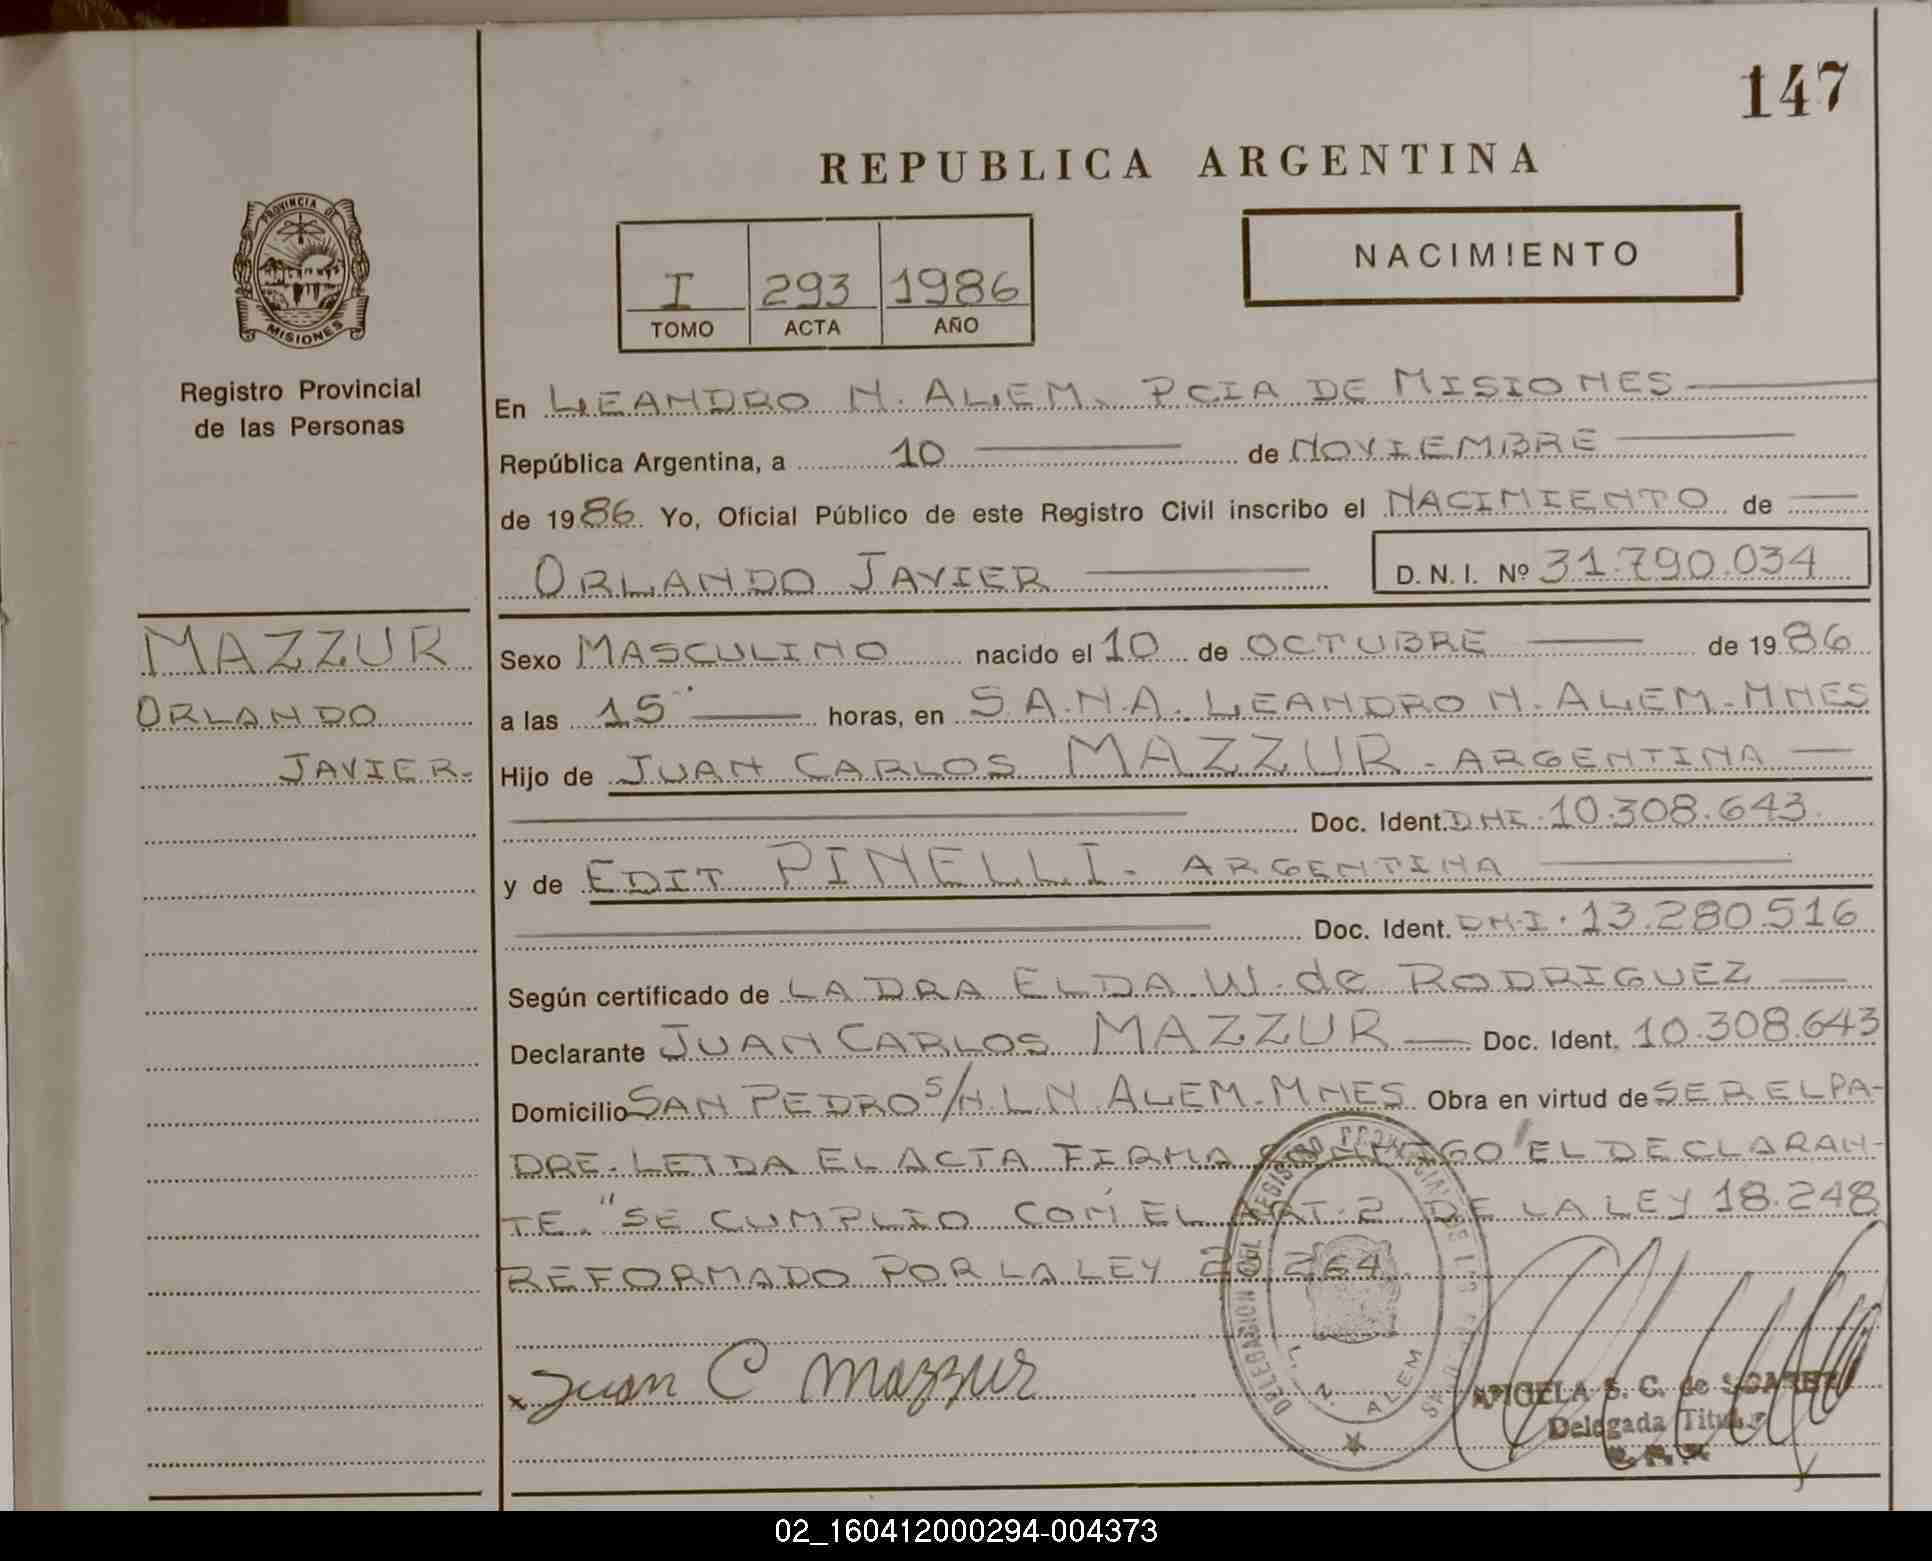 147
REPUBLICA ARGENTINA
PROVINCIA DE
MISIONES
Registro Provincial
de las Personas
I 293 1986
TOMO ACTA AÑO
NACIMIENTO
En LEANDRO N. ALEM. PCIA DE MISIONES
República Argentina, a 10 de NOVIEMBRE
de 1986. Yo, Oficial Público de este Registro Civil inscribo el NACIMIENTO de
ORLANDO JAVIER D. N. I. Nº 31.790.034
MAZZUR
ORLANDO
JAVIER.-
Sexo MASCULINO nacido el 10 de OCTUBRE de 1986
a las 15 horas, en S.A.N.A. LEANDRO N. ALEM-MNES
Hijo de JUAN CARLOS MAZZUR - ARGENTINA
Doc. Ident. DNI. 10.308.643.
y de EDIT PINELLI - ARGENTINA
Doc. Ident. DNI. 13.280.516
Según certificado de LA DRA ELDA W. de RODRIGUEZ
Declarante JUAN CARLOS MAZZUR Doc. Ident. 10.308.643
Domicilio SAN PEDRO S/N. L N ALEM-MNES Obra en virtud de SER EL PA-
DRE. LEIDA EL ACTA FIRMA CONMIGO EL DECLARAN-
TE. "SE CUMPLIO CON EL ART. 2 DE LA LEY 18.248
REFORMADO POR LA LEY 20.264
x Juan C Mazzur
DELEGACION DEL REGISTRO
L. N. ALEM
S. C. de
Delegada Titular
02_160412000294-004373